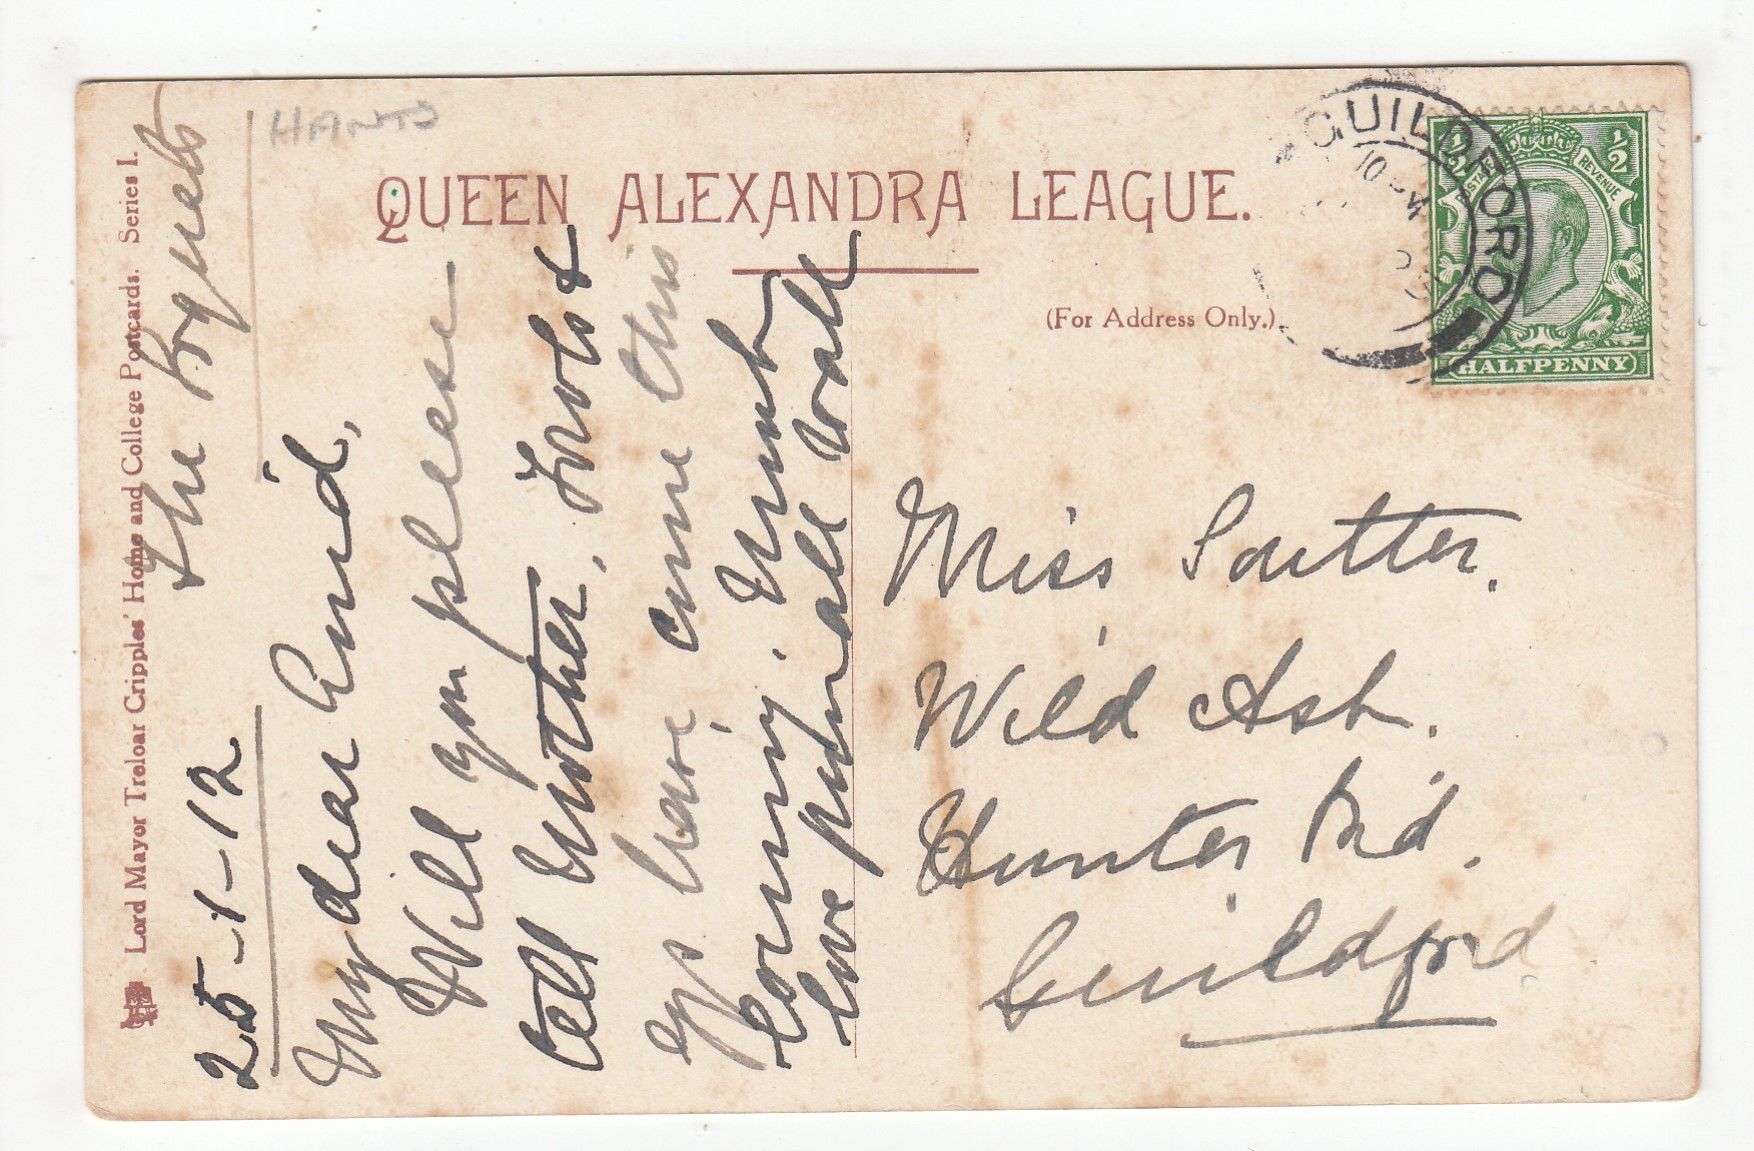 HANTS
QUEEN ALEXANDRA LEAGUE.
(For Address Only.)
GUILDFORD
10
POSTAGE
REVENUE
1/2
1/2
HALFPENNY
Lord Mayor Treloar Cripples' Home and College Postcards. Series I.
25-1-12
The
My dear Enid,
Will you please
tell Mother, Frocks &
eggs have come this
morning. Much
love from all
Miss Soutter.
Wild Ash.
Hunter Rd.
Guildford